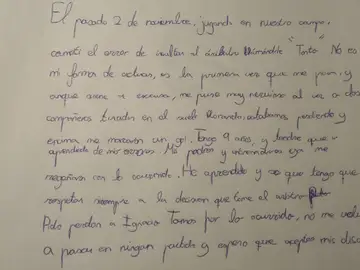 El pasado 2 de noviembre, jugando en nuestro campo,
cometí el error de insultar al árbitro llamándole "Tonto". No es
mi forma de actuar, es la primera vez que me pasa, y
aunque tiene excusa, me puse muy nervioso al ver a dos
compañeros tirados en el suelo llorando, estábamos perdiendo y
encima me marcaron un gol. Tengo 9 años, y tendré que ir
aprendiendo de mis errores. Mis padres y entrenadores ya me
regañaron con lo ocurrido. He aprendido y sé que tengo que
respetar siempre a la decisión que tome el árbitro
Pido perdón a Ignacio Tomos por lo ocurrido, no me volverá
a pasar en ningún partido y espero que aceptes mis disculpas